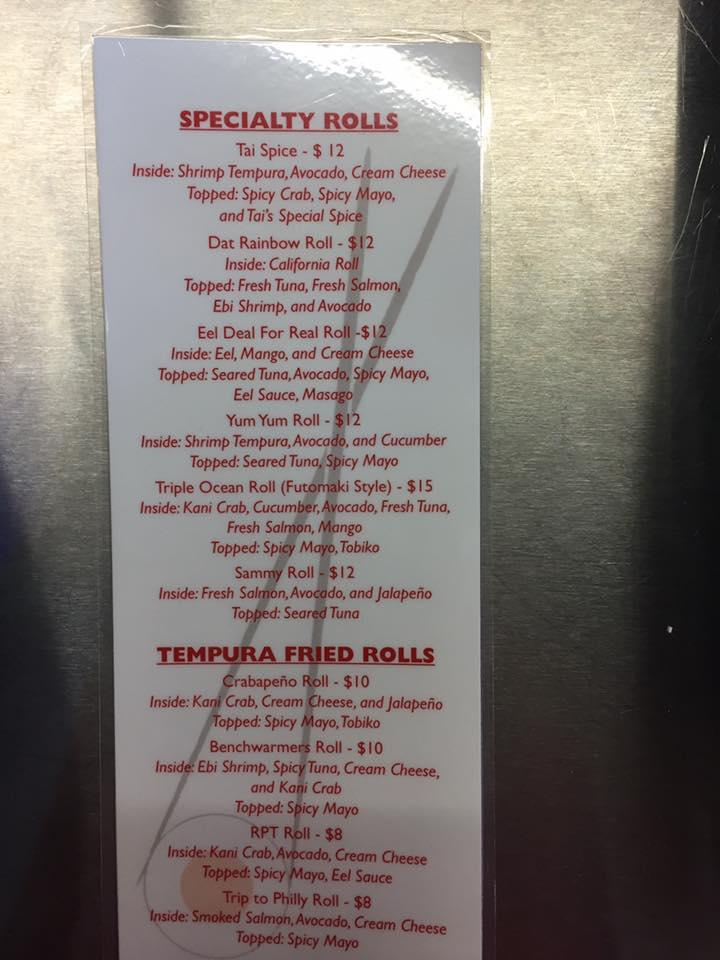 SPECIALTY ROLLS
Tai Spice - $ 12
Inside: Shrimp Tempura, Avocado, Cream Cheese
Topped: Spicy Crab, Spicy Mayo,
and Tai's Special Spice
Dat Rainbow Roll - $12
Inside: California Roll
Topped: Fresh Tuna, Fresh Salmon,
Ebi Shrimp, and Avocado
Eel Deal For Real Roll -$12
Inside: Eel, Mango, and Cream Cheese
Topped: Seared Tuna, Avocado, Spicy Mayo,
Eel Sauce, Masago
Yum Yum Roll - $12
Inside: Shrimp Tempura, Avocado, and Cucumber
Topped: Seared Tuna, Spicy Mayo
Triple Ocean Roll (Futomaki Style) - $15
Inside: Kani Crab, Cucumber, Avocado, Fresh Tuna,
Fresh Salmon, Mango
Topped: Spicy Mayo, Tobiko
Sammy Roll - $12
Inside: Fresh Salmon, Avocado, and Jalapeño
Topped: Seared Tuna
TEMPURA FRIED ROLLS
Crabapeño Roll - $10
Inside: Kani Crab, Cream Cheese, and Jalapeño
Topped: Spicy Mayo, Tobiko
Benchwarmers Roll - $10
Inside: Ebi Shrimp, Spicy Tuna, Cream Cheese,
and Kani Crab
Topped: Spicy Mayo
RPT Roll - $8
Inside: Kani Crab, Avocado, Cream Cheese
Topped: Spicy Mayo, Eel Sauce
Trip to Philly Roll - $8
Inside: Smoked Salmon, Avocado, Cream Cheese
Topped: Spicy Mayo